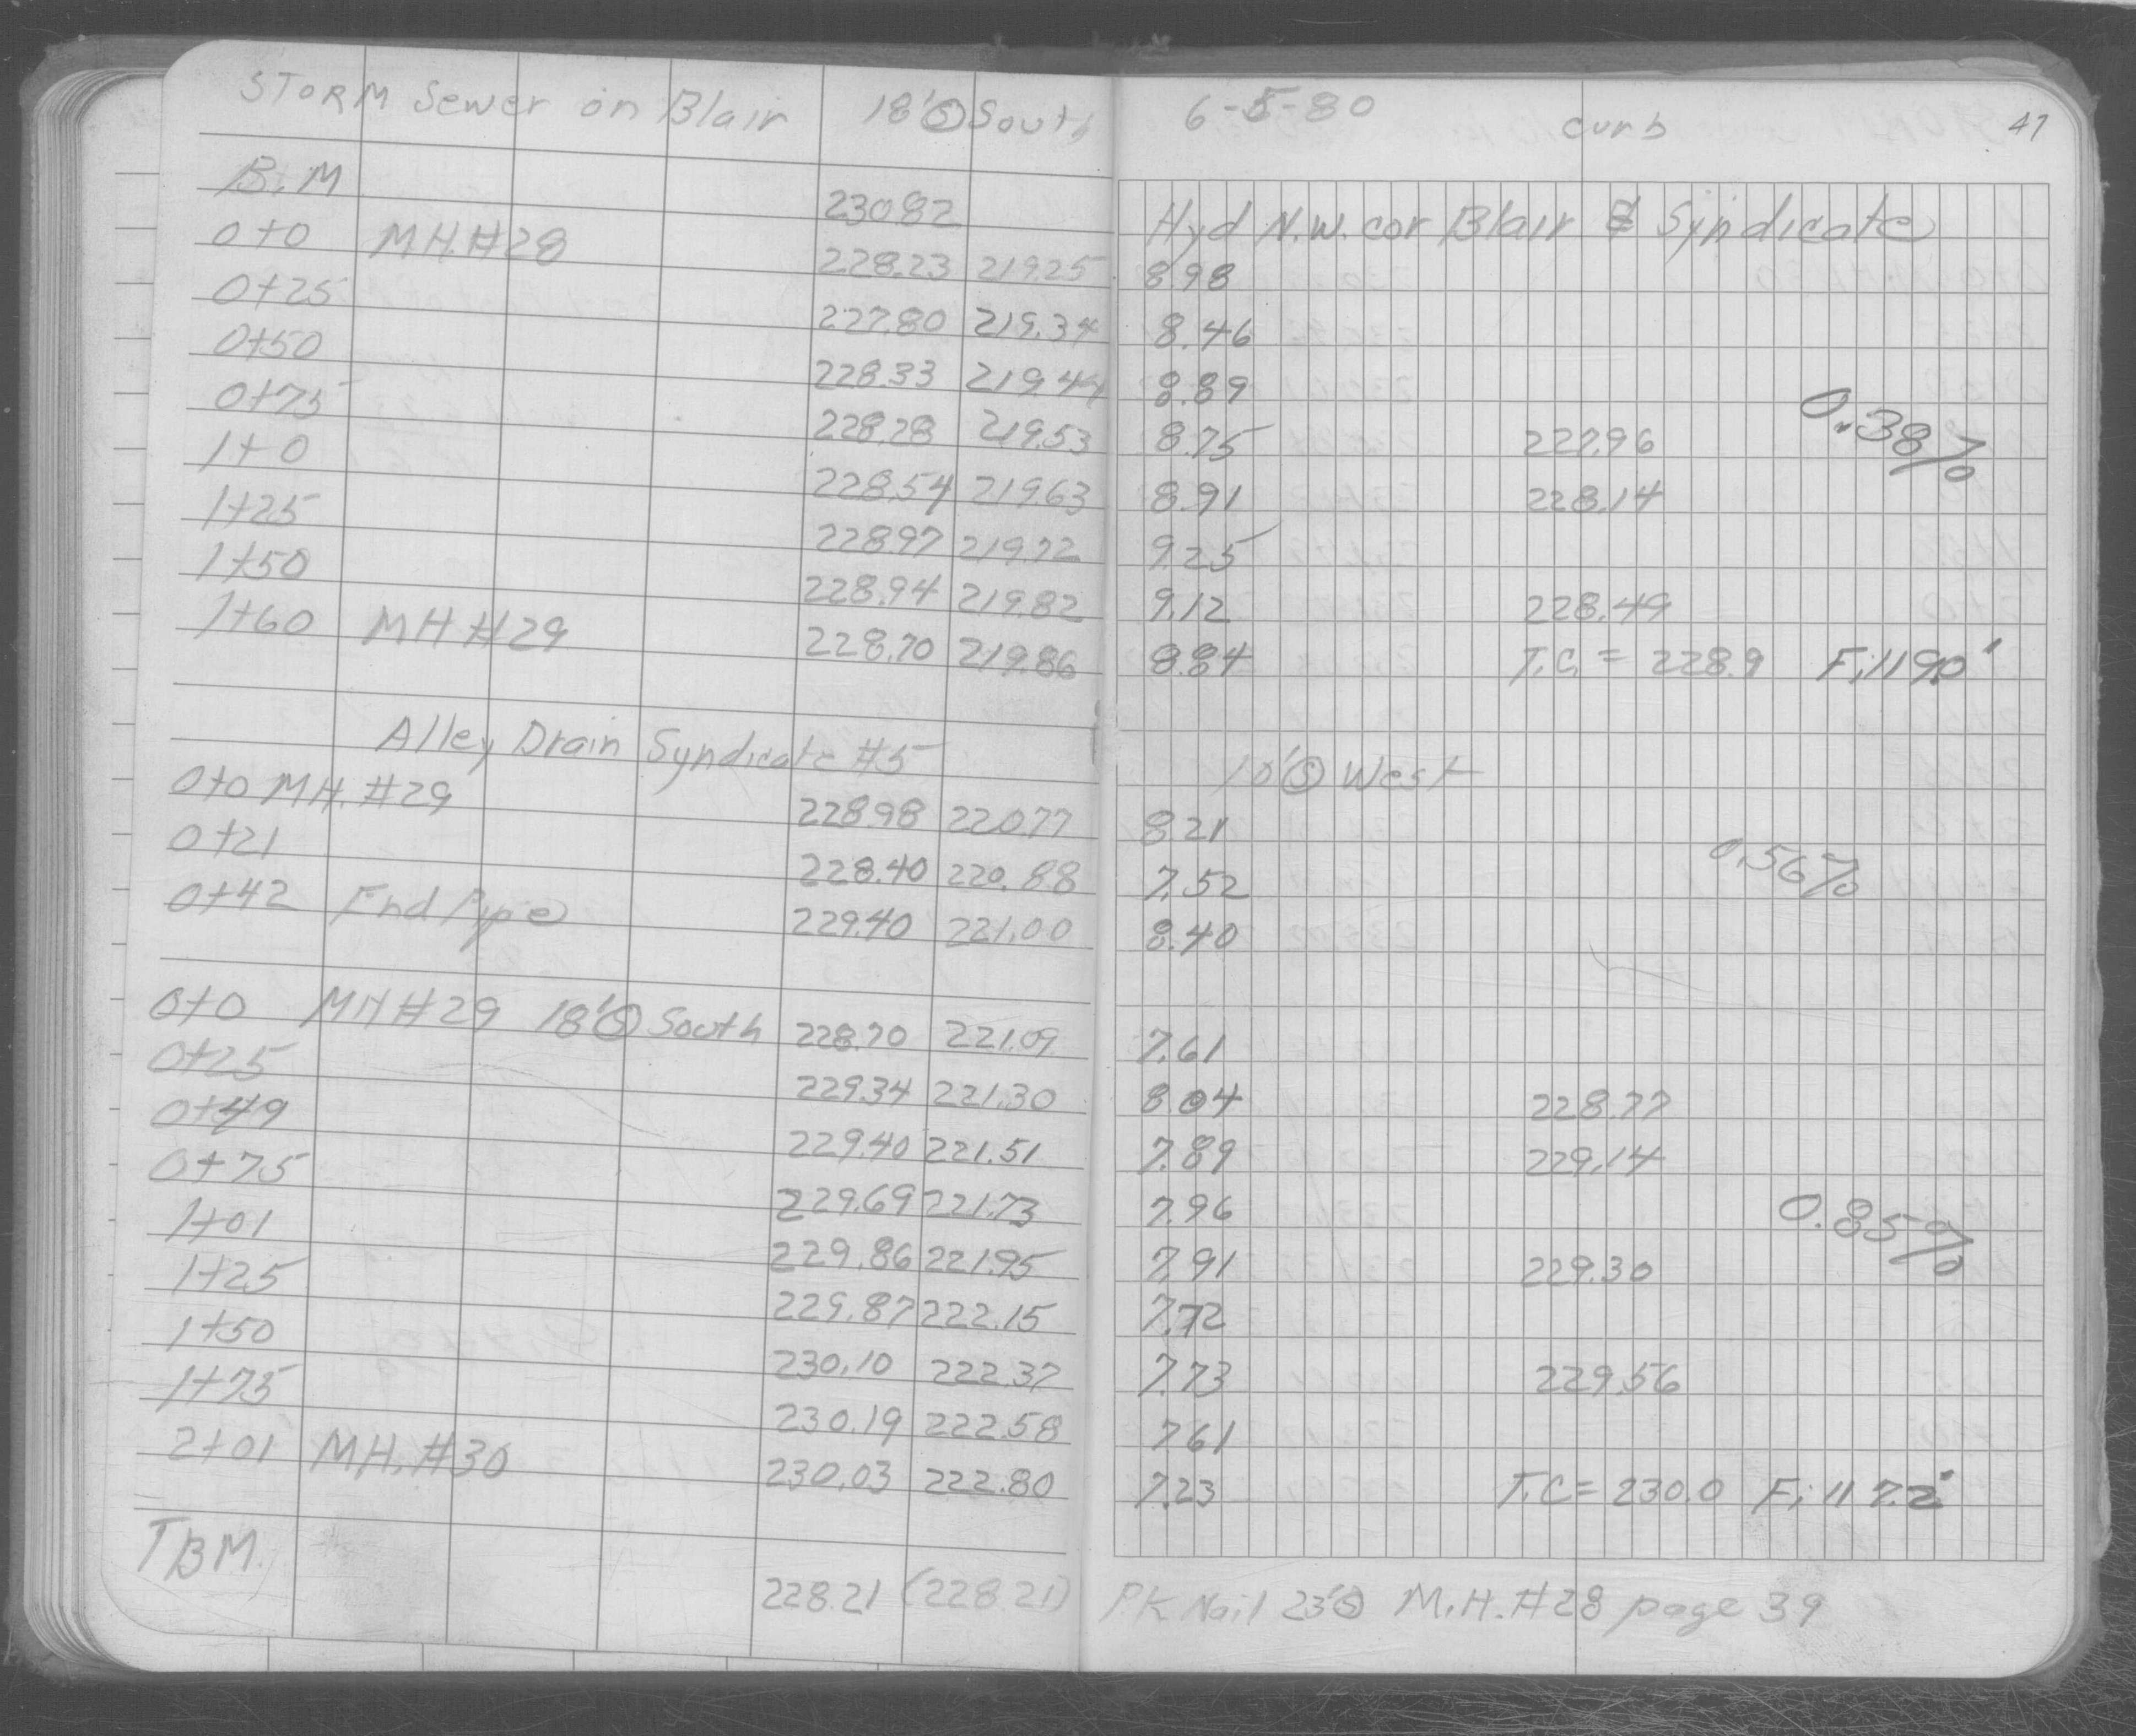 STORM Sewer on Blair 18' Ⓢ South 6-5-80 curb 41
B.M 230.82 Hyd N.W. cor Blair & Syndicate
0+0 MH.#28 228.23 219.25 8.98
0+25 227.80 219.34 8.46
0+50 228.33 219.44 8.89
0+75 228.28 219.53 8.75 227.96 0.38%
1+0 228.54 219.63 8.91 228.14
1+25 228.97 219.72 9.25
1+50 228.94 219.82 9.12 228.49
1+60 MH #29 228.70 219.86 8.84 T.C. = 228.9 Fill 9.0'
Alley Drain Syndicate #5 10' Ⓢ West
0+0 MH. #29 228.98 220.77 8.21
0+21 228.40 220.88 7.52 0.56%
0+42 End Pipe 229.40 221.00 8.40
0+0 MH #29 18' Ⓢ South 228.70 221.09 7.61
0+25 229.34 221.30 8.04 228.77
0+49 229.40 221.51 7.89 229.14
0+75 229.69 221.73 7.96 0.85%
1+01 229.86 221.95 7.91 229.30
1+25 229.87 222.15 7.72
1+50 230.10 222.37 7.73 229.56
1+75 230.19 222.58 7.61
2+01 MH. #30 230.03 222.80 7.23 T.C = 230.0 Fill 7.2'
TBM. 228.21 (228.21) P.K Nail 23' Ⓢ M.H. #28 page 39